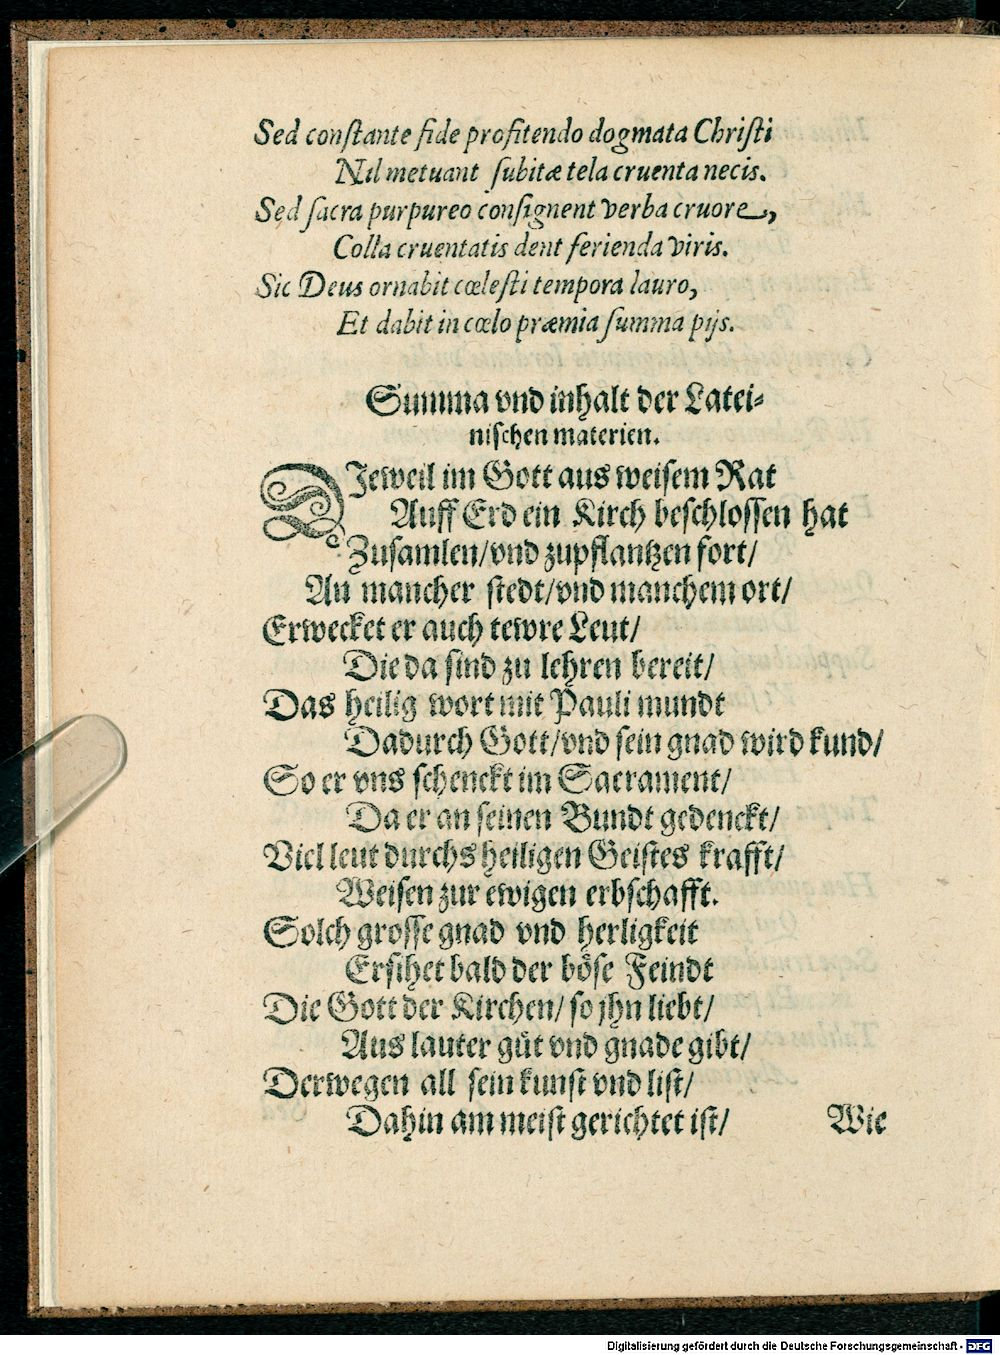 Sed constante fide profitendo dogmata Christi
Nil metuant subitæ tela cruenta necis.
Sed sacra purpureo consignent verba cruore,
Colla cruentatis dent ferienda viris.
Sic Deus ornabit cœlesti tempora lauro,
Et dabit in cœlo præmia summa pijs.
Summa vnd inhalt der Latei-
nischen materien.
DJeweil im Gott aus weisem Rat
Auff Erd ein Kirch beschlossen hat
Zusamlen/vnd zupflantzen fort/
An mancher stedt/vnd manchem ort/
Erwecket er auch tewre Leut/
Die da sind zu lehren bereit/
Das heilig wort mit Pauli mundt
Dadurch Gott/vnd sein gnad wird kund/
So er vns schenckt im Sacrament/
Da er an seinen Bundt gedenckt/
Viel leut durchs heiligen Geistes krafft/
Weisen zur ewigen erbschafft.
Solch grosse gnad vnd herligkeit
Ersihet bald der böse Feindt
Die Gott der Kirchen/ so jhn liebt/
Aus lauter güt vnd gnade gibt/
Derwegen all sein kunst vnd list/
Dahin am meist gerichtet ist/
Wie
Digitalisierung gefördert durch die Deutsche Forschungsgemeinschaft - DFG